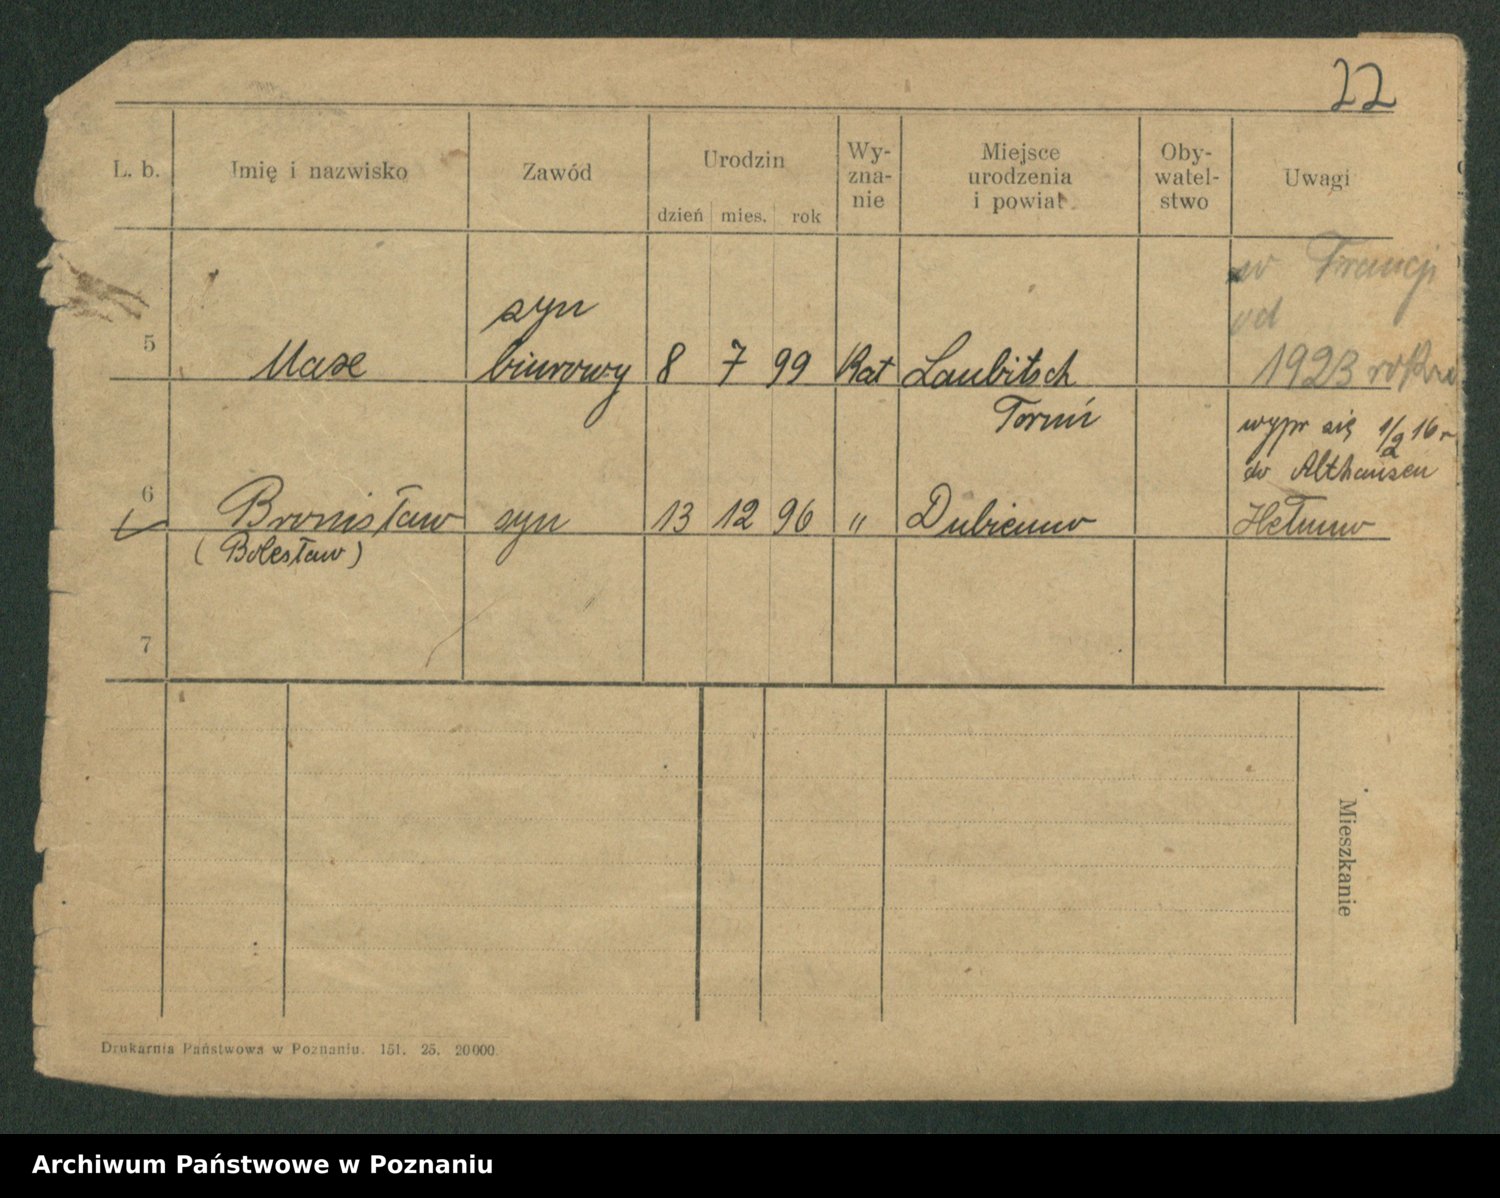 22
L. b. Imię i nazwisko Zawód Urodzin Wy-zna-nie Miejsce urodzenia i powiat Oby-watel-stwo Uwagi
dzień mies. rok
w Francji
od
1923 roku
syn
5 Max biurowy 8 7 99 Kat Laubitsch
Toruń
wypr się 1/2 16 r
do Althausen
6 Bronisław syn 13 12 96 " Dubienno Hełmno
(Bolesław)
7
Mieszkanie
Drukarnia Państwowa w Poznaniu. 151. 25. 20000.
Archiwum Państwowe w Poznaniu